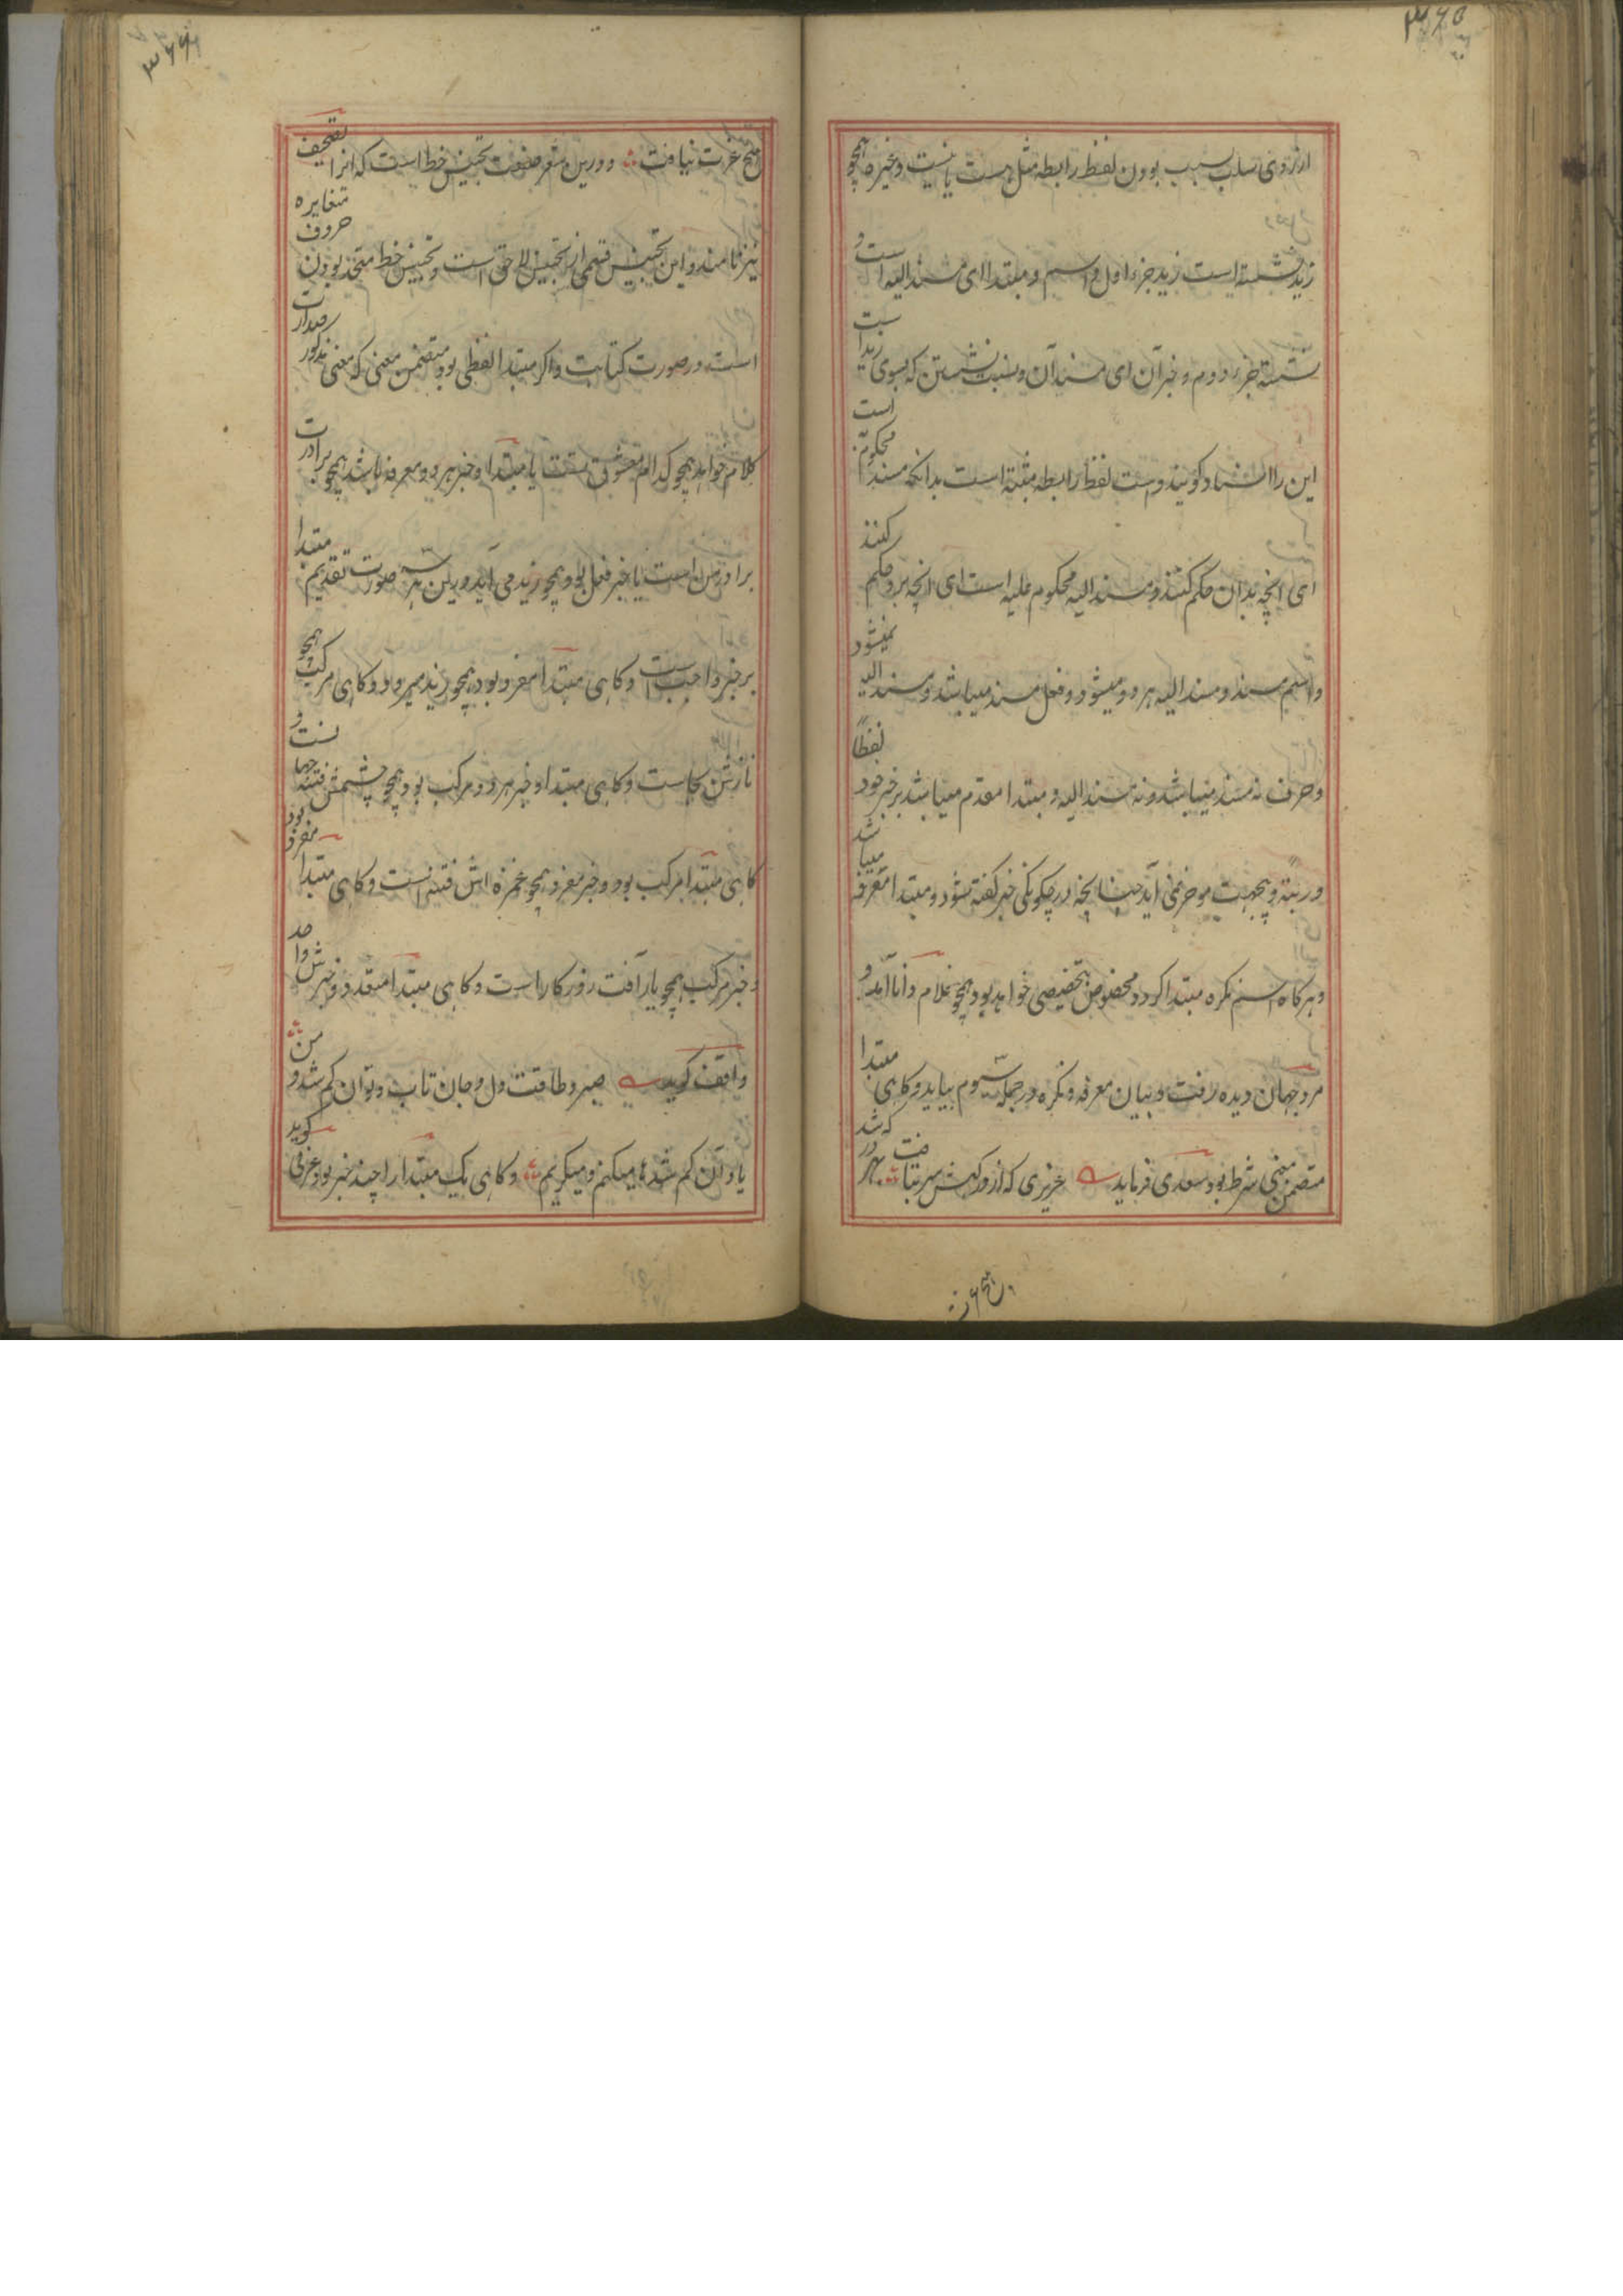 ۳۶۵
از روی سلب بسبب بودن لفظ رابطه مثل هست یا نیست و غیره همچو
زید نشسته است زید جزء اول و اسم و مبتدا ای مسند الیه است و
نشسته جزء دوم و خبر آن ای مسند آن و نسبت نشستن که بسوی زید است
این را اسناد گویند و است لفظ رابطه مثبته است بدانکه مسند محکوم به است
ای انچه بدان حکم کنند و مسند الیه محکوم علیه است ای انچه برو حکم کنند
و اسم مسند و مسند الیه هر دو میشود و فعل مسند میباشد و مسند الیه نمیشود
و حرف نه مسند میباشد و نه مسند الیه و مبتدا مقدم میباشد بر خبر خود لفظاً
و رتبة و بجهت موخر نمی آید چنانچه در چگونگی خبر گفته شود و مبتدا معرفه میباشد
و هر گاه اسم نکره مبتدا گردد مخصوص بتخصیصی خواهد بود همچو غلام دانا آمد و
مرد جهان دیده رفت و بیان معرفه و نکره در جمله سیوم بیاید و گاهی مبتدا
متضمن معنی شرط بود سعدی فرماید عزیزی که از درگهش سر بتافت بهر در که شد
هیچ عزت
۳۶۶
هیچ عزت نیافت و درین شعر صنعت تجنیس خط است که انرا تصحیف
نیز نامند و این تجنیس قسمی از تجنیس لاحق است و تجنیس خط متحد بودن حروف متغایره
است در صورت کتابت و اگر مبتدا لفظی بود متضمن معنی که معنی مذکور صدارت
کلام خواهد همچو کدام معشوق تست یا مبتدا و خبر هر دو معرفه باشد همچو برادرت
برادر من است یا خبر فعل بود همچو زید می آید درین هر سه صورت تقدیم مبتدا
بر خبر واجب است و گاهی مبتدا مفرد بود همچو زید میرود و گاهی مرکب همچو
نازش بجاست و گاهی مبتدا و خبر هر دو مرکب بود همچو چشمش فتنه جهانست و
گاهی مبتدا مرکب بود و خبر مفرد همچو غمزه اش فتنه است و گاهی مبتدا مفرد بود
و خبر مرکب همچو یار آفت روزگار است و گاهی مبتدا متعدد و خبرش واحد
واقف گوید صبر و طاقت دل و جان تاب و توان گم شد و من
یاد آن گم شدها میکنم و میگریم و گاهی یک مبتدا را چند خبر بود عرفی گوید